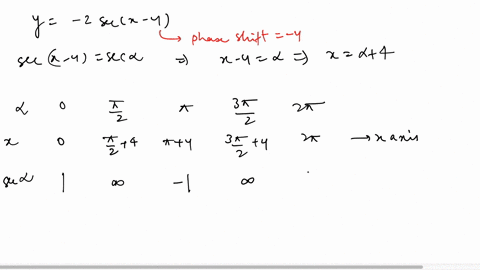 y = -2 sec(x-4)
→ phase shift = -4
sec(x-4) = sec α ⇒ x-4 = α ⇒ x = α+4
α 0 π/2 π 3π/2 2π
x 0 π/2+4 π+4 3π/2+4 2π → x axis
sec α 1 ∞ -1 ∞